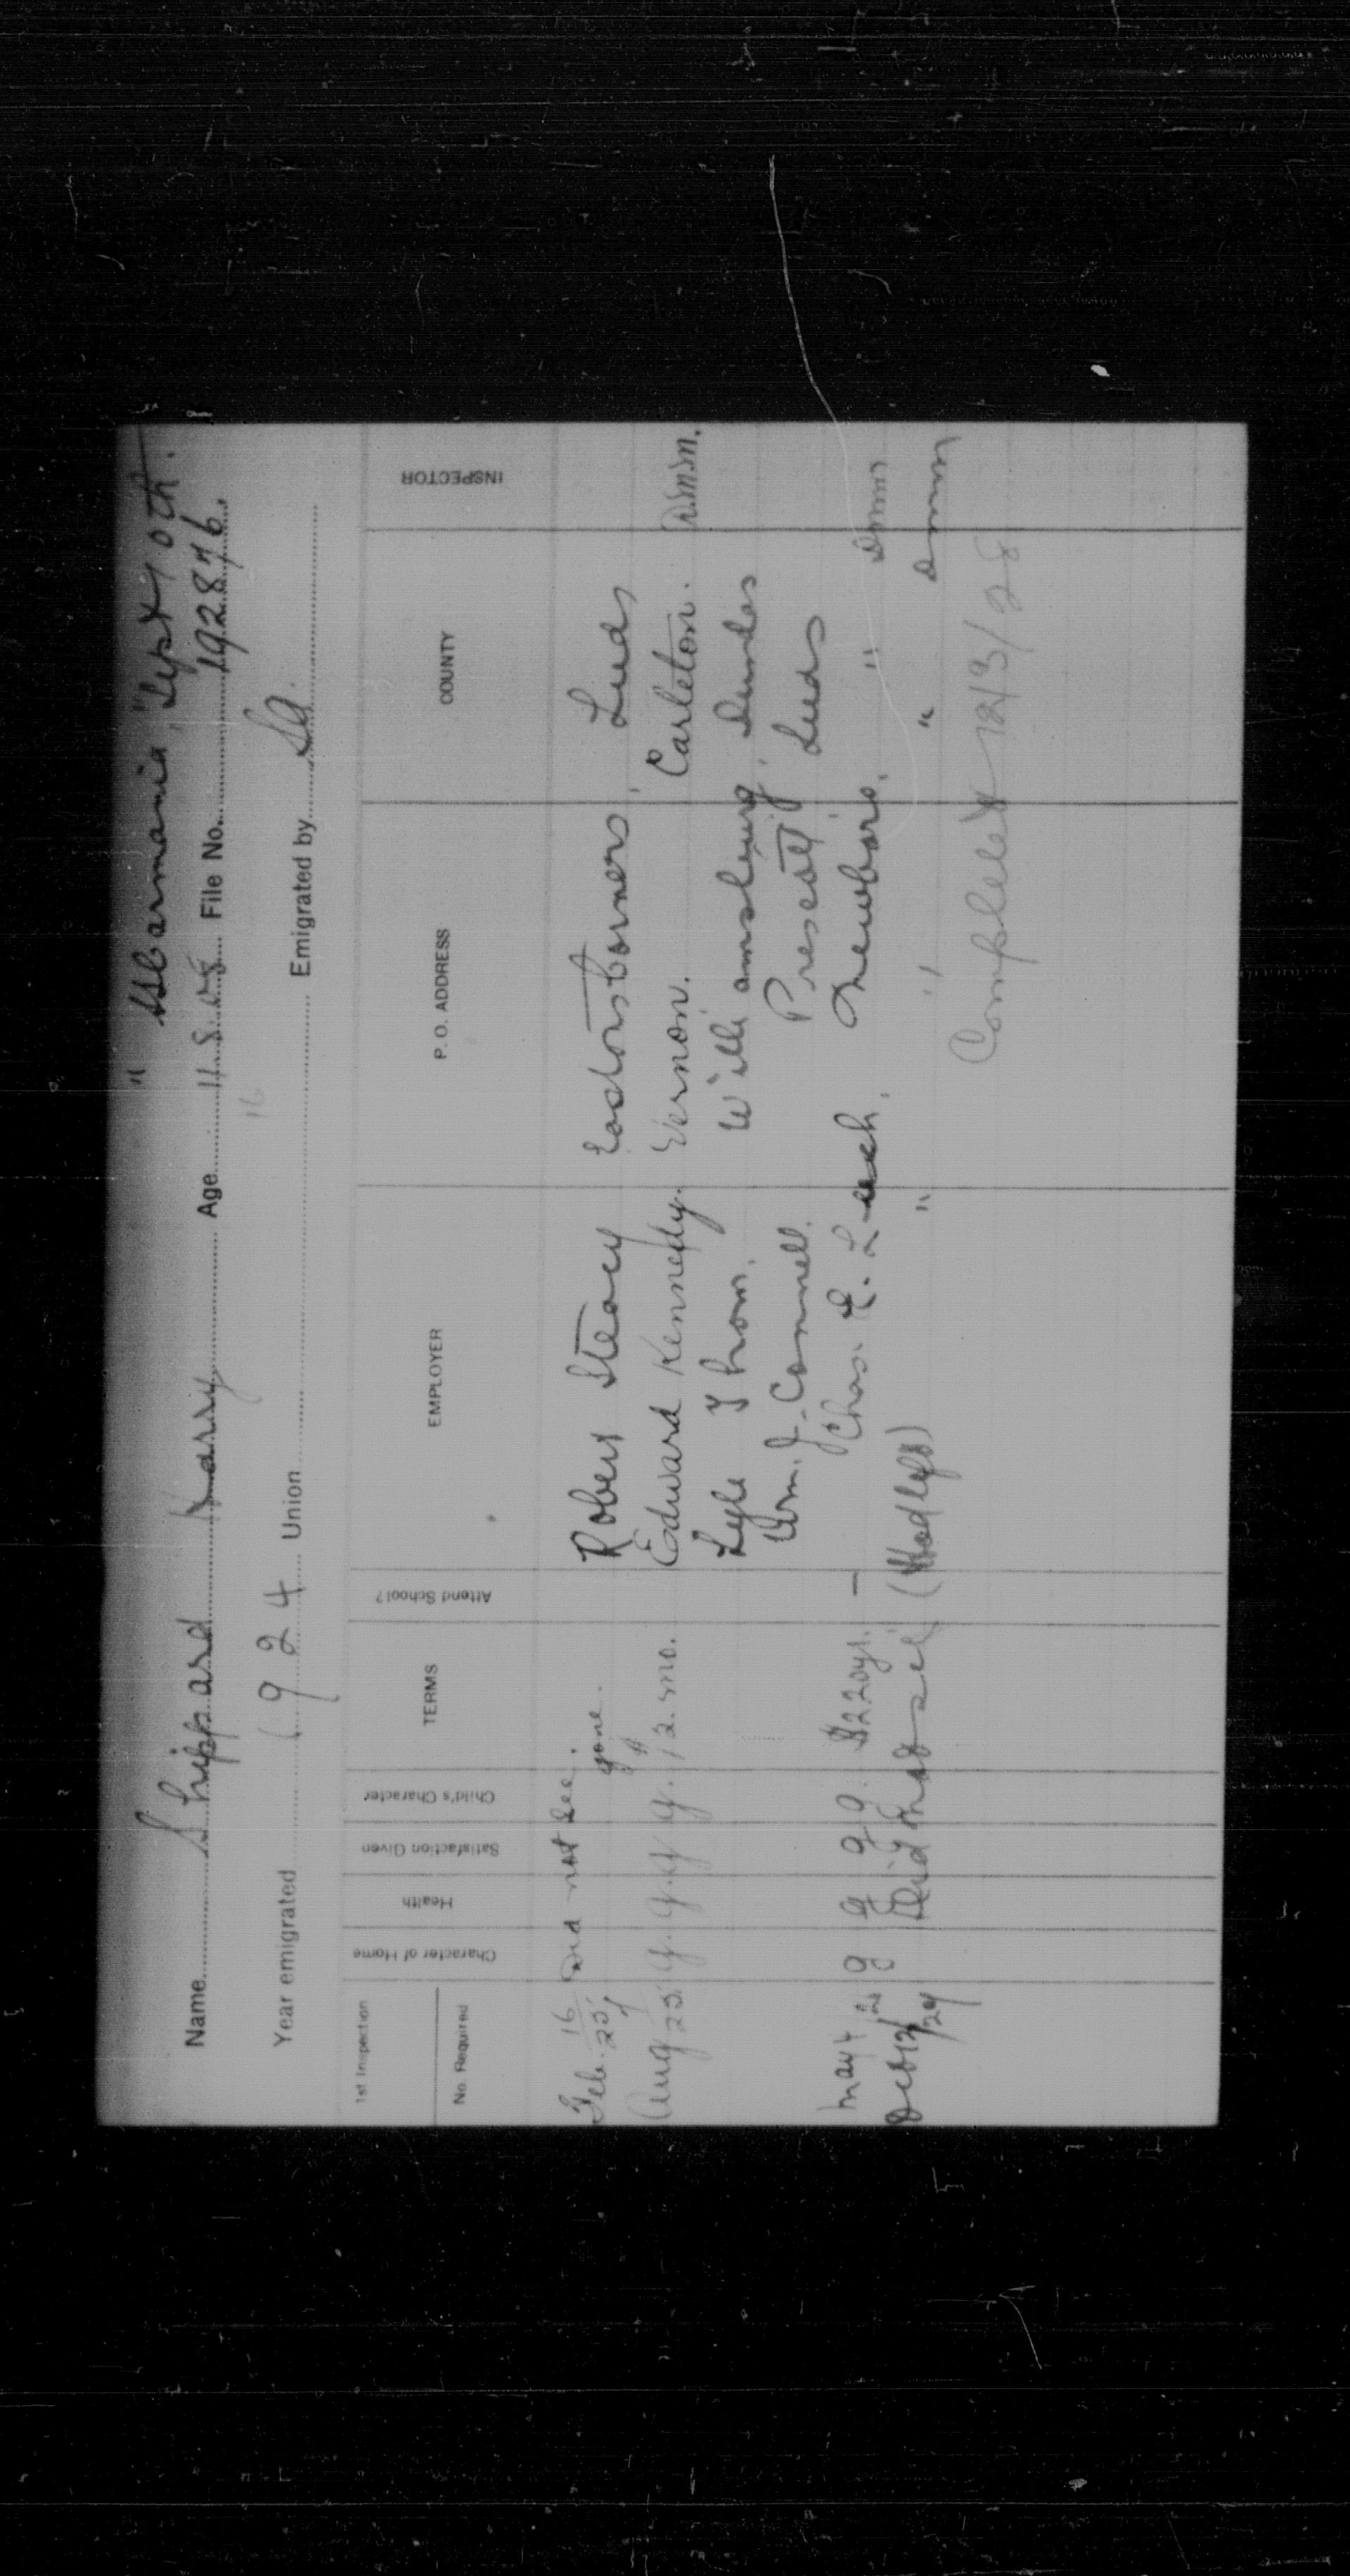 " Albarmania, "Sept 10th.
Name Shippard Harry Age 11.8.08 File No. 192876.
16
Year emigrated 1924 Union Emigrated by SA.
1st Inspection
No. Required
Character of Home Health Satisfaction Given Child's Character TERMS Attend School? EMPLOYER P. O. ADDRESS COUNTY INSPECTOR
Feb. 16/25, Did not see. gone. Robert Steacy Eastons Corners, Leeds
Aug 7/25. g. g. g. g. $12. mo. Edward Kennedy. Vernon. Carleton. D.M.M.
Lyle Thom. Williamsburg, Dundas
Wm. J. Connell. Prescott, Leeds
May 4 g g g g. $220 yr. — Chas. E. Leach, Newboro, "
Oct 12/29 Did not see (Had left) " " "
Completed 12/3/28